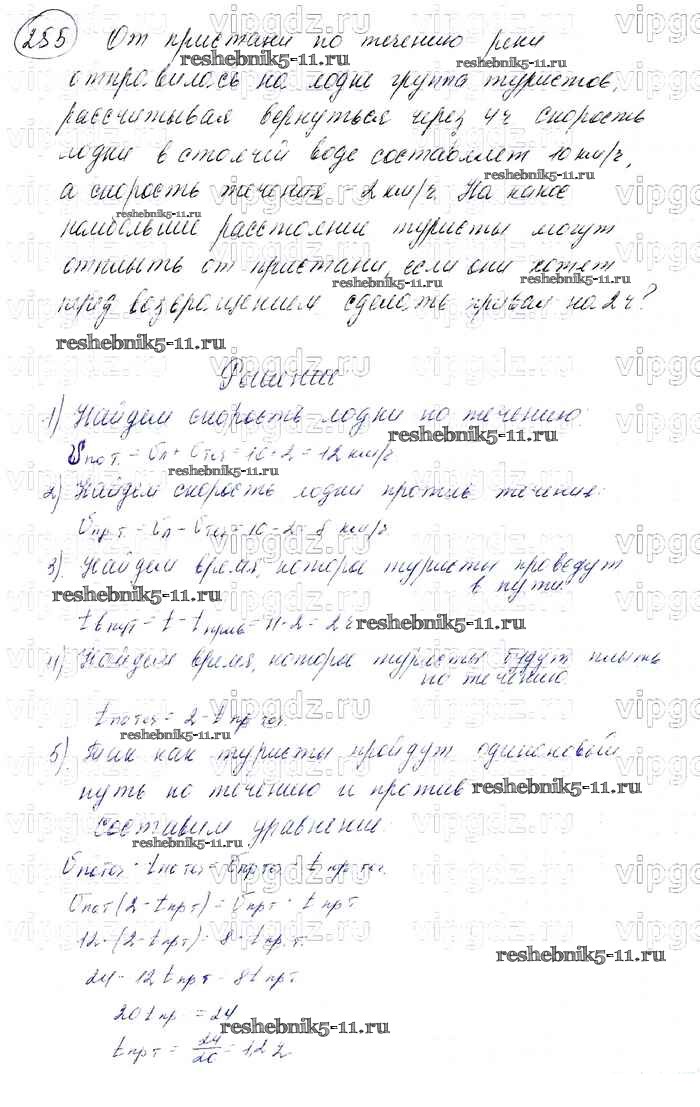 255 От пристани по течению реки
отправилась на лодке группа туристов,
рассчитывая вернуться через 4ч скорость
лодки в стоячей воде составляет 10 км/ч,
а скорость течения - 2 км/ч. На какое
наибольшее расстояние туристы могут
отплыть от пристани, если они хотят
перед возвращением сделать привал на 2 ч?
Решение
1) Найдем скорость лодки по течению:
υпо т. = υл + υтеч = 10+2 = 12 км/ч
2) Найдем скорость лодки против течения:
υпрт = υл - υтеч = 10-2 = 8 км/ч
3) Найдем время, которое туристы проведут
в пути.
tв пут = t - tприв = 4-2 = 2ч
4) Найдем время, которое туристы будут плыть
по течению.
tпо теч = 2 - tпр теч.
5) Так как туристы пройдут одинаковый
путь по течению и против
составим уравнение:
υпо теч · tпо теч = υпр теч · tпр теч.
υпот (2 - tпрт) = υпрт · tпрт
12·(2 - tпрт) = 8·tпрт
24 - 12tпрт = 8tпрт
20tпр = 24
tпрт = 24/20 = 1,2 ч
reshebnik5-11.ru
vipgdz.ru